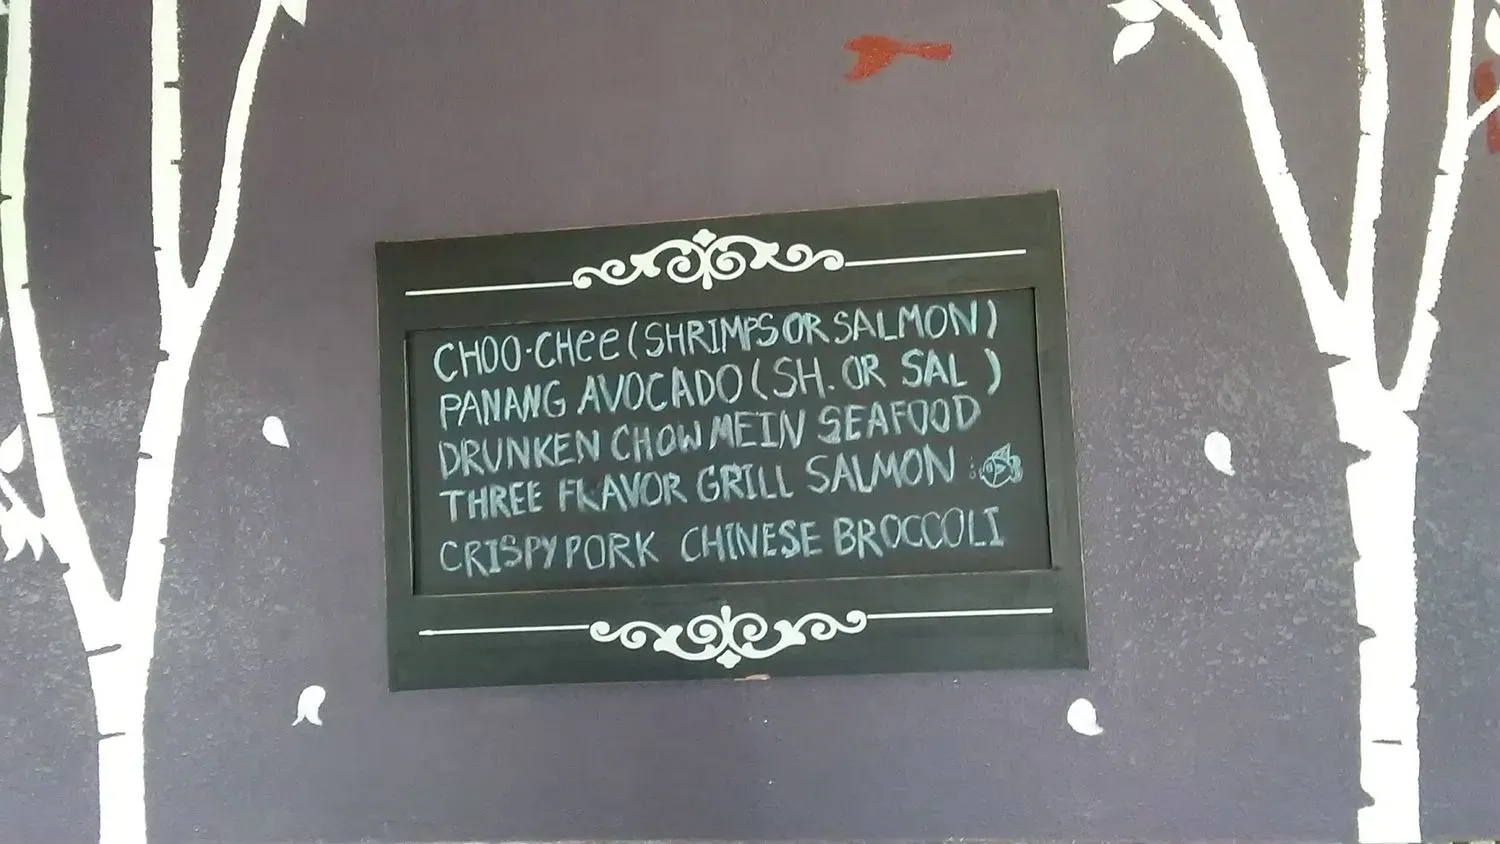 CHOO-CHee (SHRIMPS OR SALMON)
PANANG AVOCADO (SH. OR SAL )
DRUNKEN CHOW MEIN SEAFOOD
THREE FLAVOR GRILL SALMON
CRISPY PORK CHINESE BROCCOLI